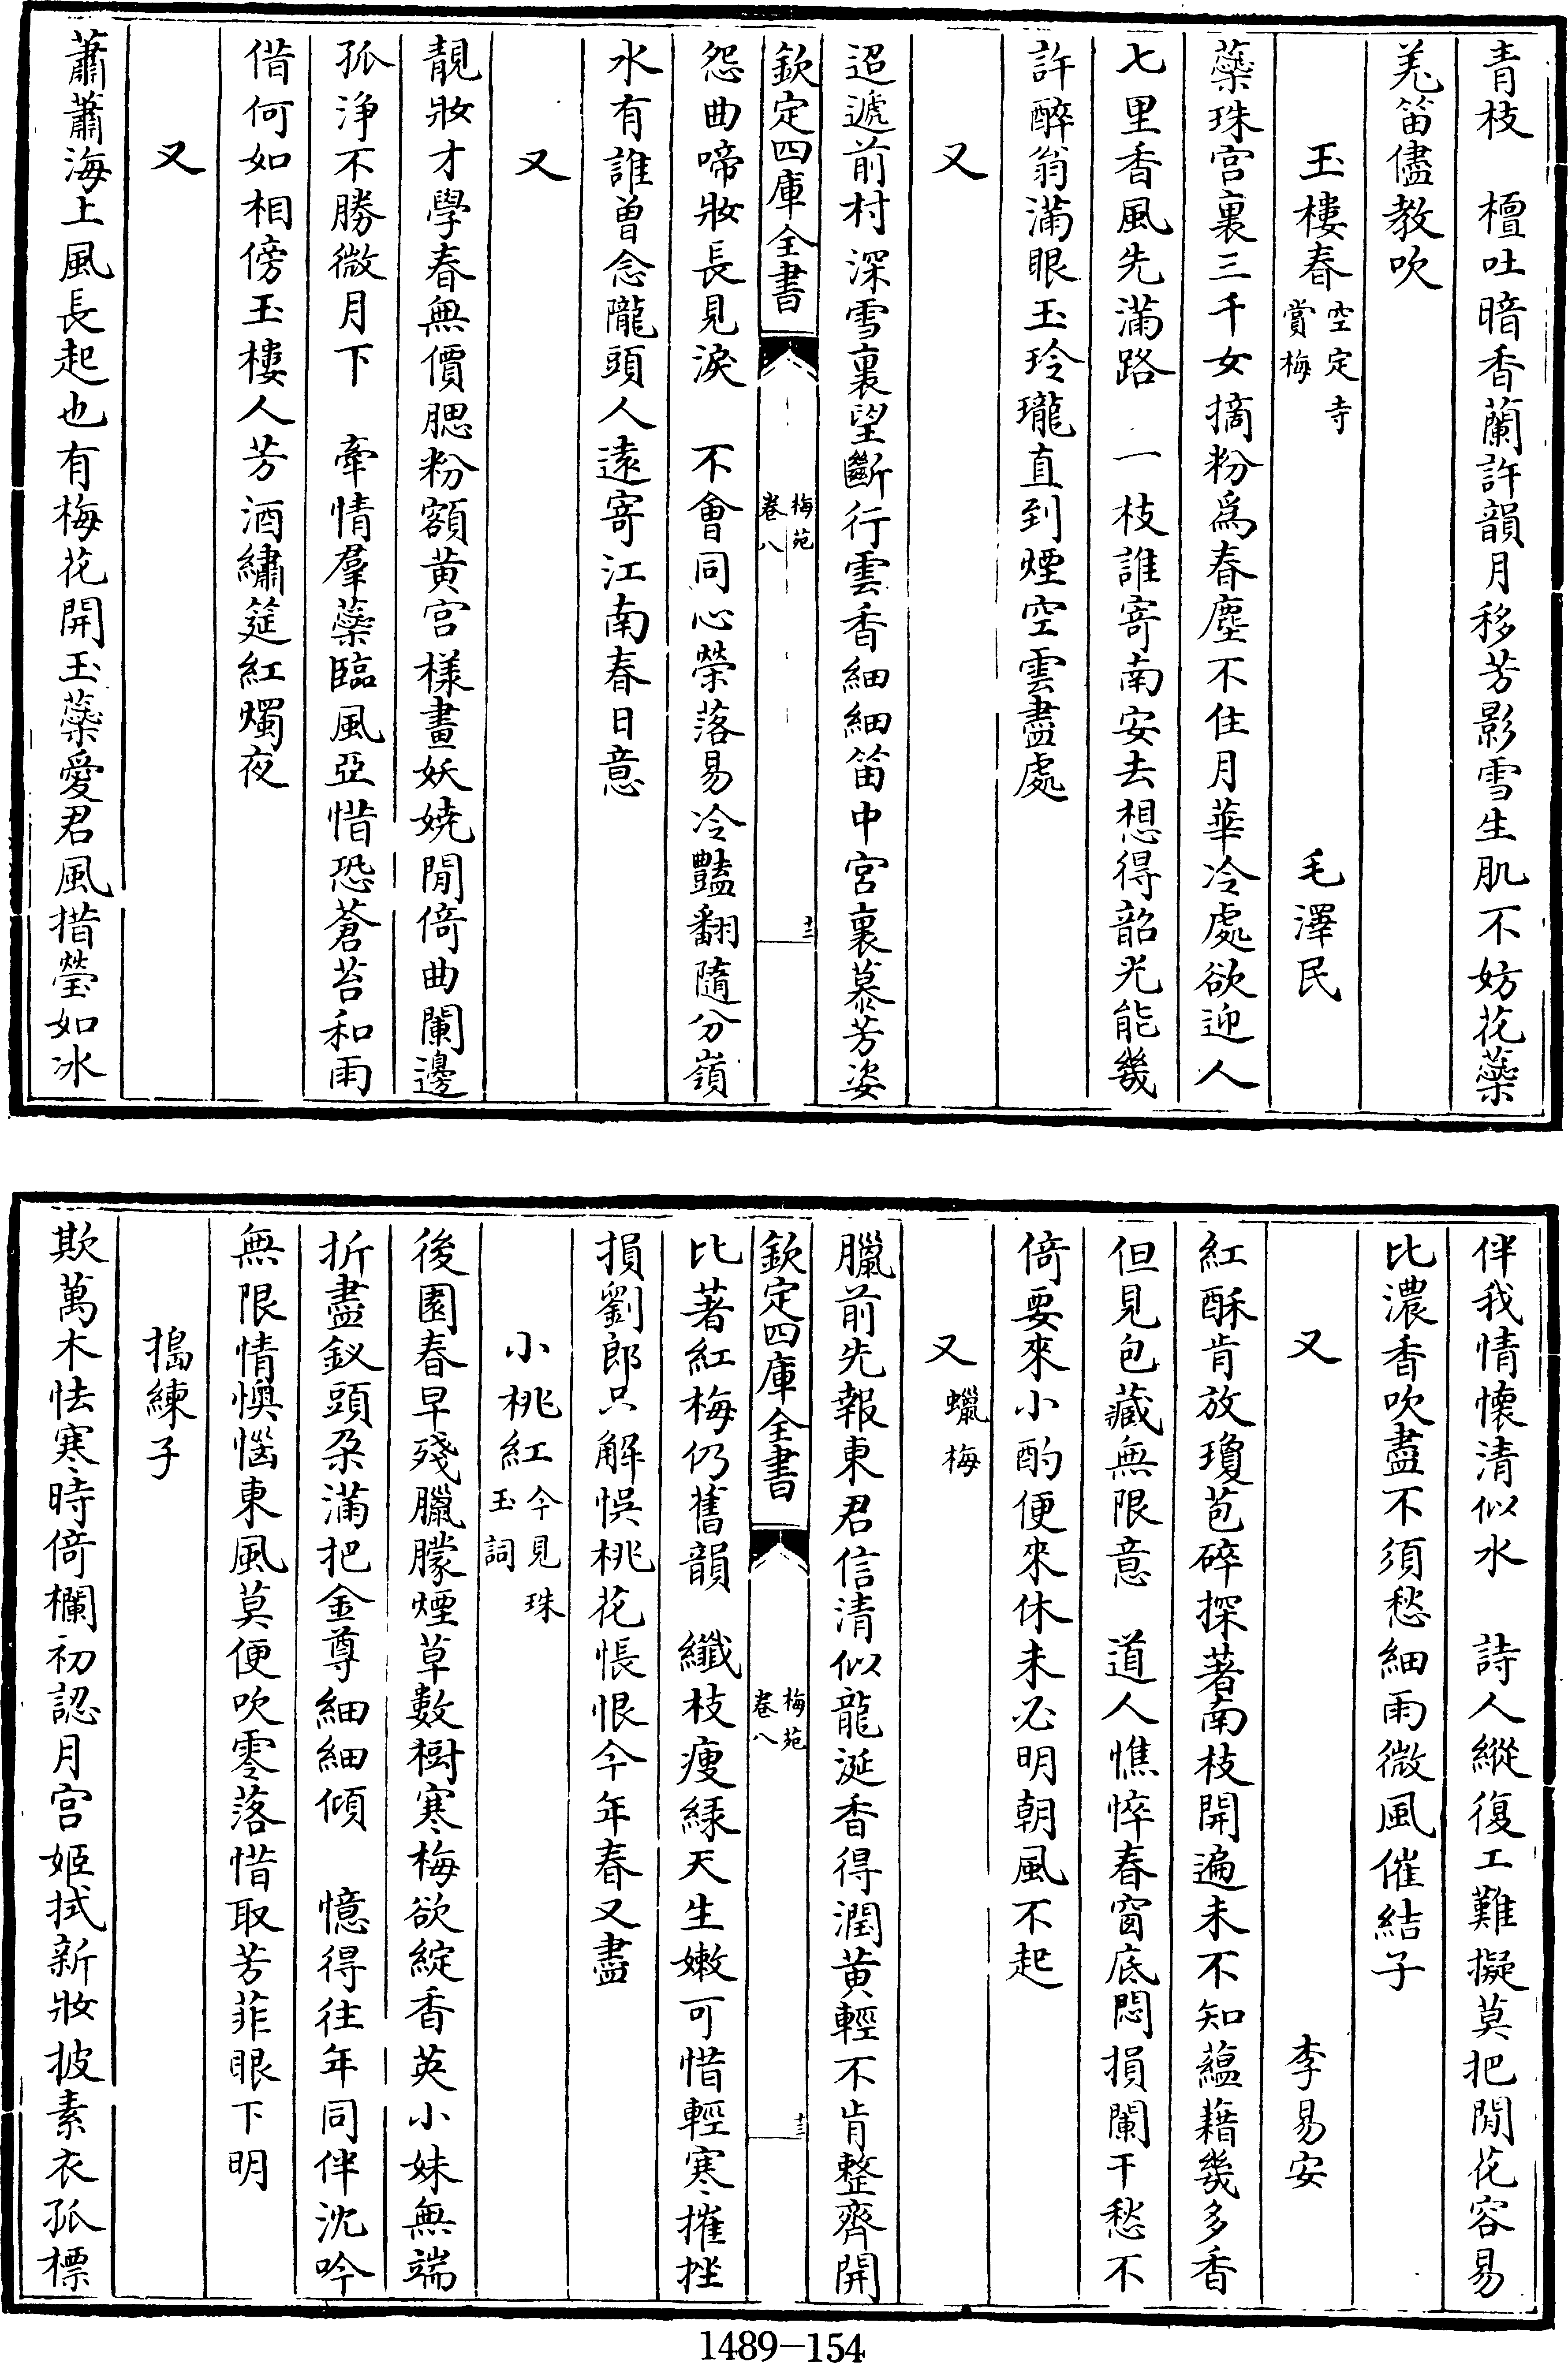 青枝　檀吐暗香蘭許韻月移芳影雪生肌不妨花蘂
羌笛儘教吹
玉樓春空定寺賞梅　毛澤民
蘂珠宫裏三千女摘粉爲春塵不住月華冷處欲迎人
七里香風先滿路　一枝誰寄南安去想得韶光能幾
許醉翁滿眼玉玲瓏直到煙空雲盡處
又
迢遞前村深雪裏望斷行雲香細細笛中宮裏慕芳姿
欽定四庫全書　梅苑卷八　十三
怨曲啼妝長見淚　不會同心榮落易冷豔翻隨分嶺
水有誰曾念隴頭人遠寄江南春日意
又
靚妝才學春無價腮粉額黄宫樣畫妖嬈閒倚曲闌邊
孤淨不勝微月下　牽情羣蘂臨風亞惜恐蒼苔和雨
借何如相傍玉樓人芳酒繡筵紅燭夜
又
蕭蕭海上風長起也有梅花開玉蘂愛君風措瑩如冰
伴我情懷清似水　詩人縱復工難擬莫把閒花容易
比濃香吹盡不須愁細雨微風催結子
又　李易安
紅酥肯放瓊苞碎探著南枝開遍未不知藴藉幾多香
但見包藏無限意　道人憔悴春窗底悶損闌干愁不
倚要來小酌便來休未必明朝風不起
又蠟梅
臘前先報東君信清似龍涎香得潤黄輕不肯整齊開
欽定四庫全書　梅苑卷八　十三
比著紅梅仍舊韻　纎枝瘦緑天生嫩可惜輕寒摧挫
損劉郎只解悞桃花悵恨今年春又盡
小桃紅今見珠玉詞
後園春早殘臘朦煙草數樹寒梅欲綻香英小妹無端
折盡釵頭朶滿把金尊細細傾　憶得往年同伴沈吟
無限情懊惱東風莫便吹零落惜取芳菲眼下明
搗練子
欺萬木怯寒時倚欄初認月宫姬拭新妝披素衣孤標
1489-154